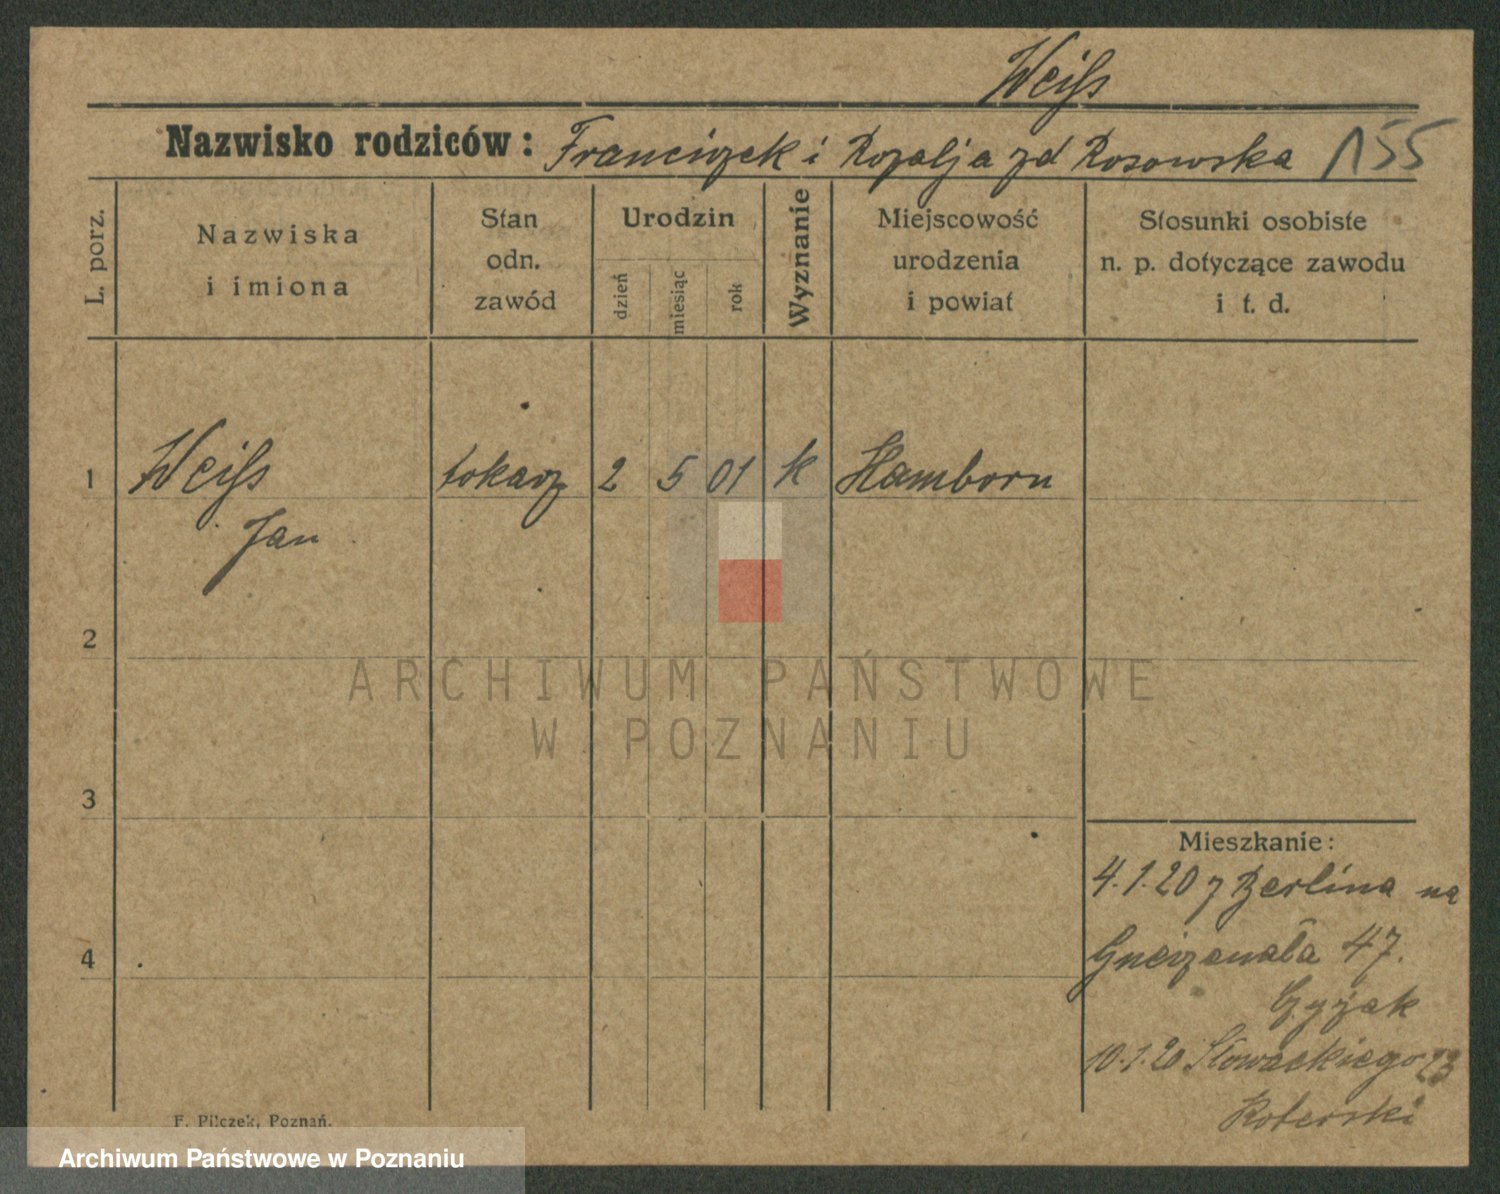 Weiß
Nazwisko rodziców: Franciszek i Rozalja zd Rosowska 155
L. porz.
Nazwiska
i imiona
Stan
odn.
zawód
Urodzin
dzień
miesiąc
rok
Wyznanie
Miejscowość
urodzenia
i powiat
Stosunki osobiste
n. p. dotyczące zawodu
i t. d.
1 Weiß tokarz 2 5 01 k Hamborn
Jan
2
3
4
ARCHIWUM PAŃSTWOWE
W POZNANIU
Mieszkanie:
4.1.20 z Berlina na
Gneizenała 47.
10.1.20 Słowackiego 23
Koterski
F. Pilczek, Poznań.
Archiwum Państwowe w Poznaniu